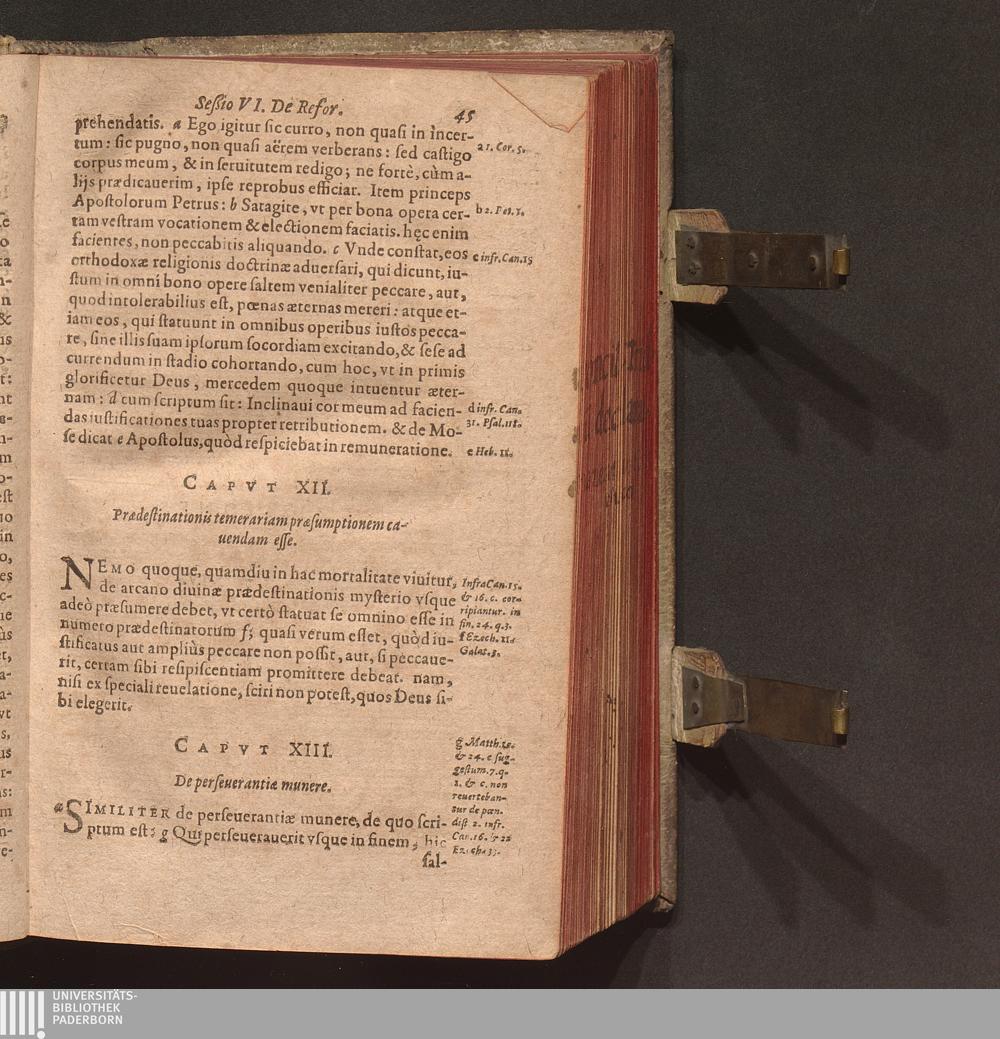 Seſsio VI. De Refor. 45
prehendatis. a Ego igitur ſic curro, non quaſi in incer-
tum: ſic pugno, non quaſi aërem verberans: ſed caſtigo
corpus meum, & in ſeruitutem redigo; ne fortè, cùm a-
lijs prædicauerim, ipſe reprobus efficiar. Item princeps
Apoſtolorum Petrus: b Satagite, vt per bona opera cer-
tam veſtram vocationem & electionem faciatis. hęc enim
facientes, non peccabitis aliquando. c Vnde conſtat, eos
orthodoxæ religionis doctrinæ aduerſari, qui dicunt, iu-
ſtum in omni bono opere ſaltem venialiter peccare, aut,
quod intolerabilius eſt, pœnas æternas mereri: atque et-
iam eos, qui ſtatuunt in omnibus operibus iuſtos pecca-
re, ſine illis ſuam ipſorum ſocordiam excitando, & ſeſe ad
currendum in ſtadio cohortando, cum hoc, vt in primis
glorificetur Deus, mercedem quoque intuentur æter-
nam: d cum ſcriptum ſit: Inclinaui cor meum ad facien-
das iuſtificationes tuas propter retributionem. & de Mo-
ſe dicat e Apoſtolus, quòd reſpiciebat in remuneratione.
a 1. Cor. 5.
b 2. Pet. 1.
c infr. Can. 25
d infr. Can.
31. Pſal. 118.
e Heb. 11.
CAPVT XII.
Prædeſtinationis temerariam præſumptionem ca-
uendam eſſe.
NEMO quoque, quamdiu in hac mortalitate viuitur,
de arcano diuinæ prædeſtinationis myſterio vſque
adeò præſumere debet, vt certò ſtatuat ſe omnino eſſe in
numero prædeſtinatorum f; quaſi verum eſſet, quòd iu-
ſtificatus aut ampliùs peccare non poſſit, aut, ſi peccaue-
rit, certam ſibi reſipiſcentiam promittere debeat. nam,
niſi ex ſpeciali reuelatione, ſciri non poteſt, quos Deus ſi-
bi elegerit.
Infra Can. 15.
& 16. c. cor-
ripiantur. in
fin. 24. q. 3.
f Ezech. 11.
Galat. 3.
CAPVT XIII.
De perſeuerantiæ munere.
a SIMILITER de perſeuerantiæ munere, de quo ſcri-
ptum eſt: g Qui perſeuerauerit vſque in finem, hic
ſal-
g Matth. 10.
& 24. c ſug-
geſtum. 7. q.
1. & c. non
reuerteban-
tur de pœn.
diſt 2. infr.
Can. 16. & 22
Ezech. 33.
UNIVERSITÄTS-
BIBLIOTHEK
PADERBORN